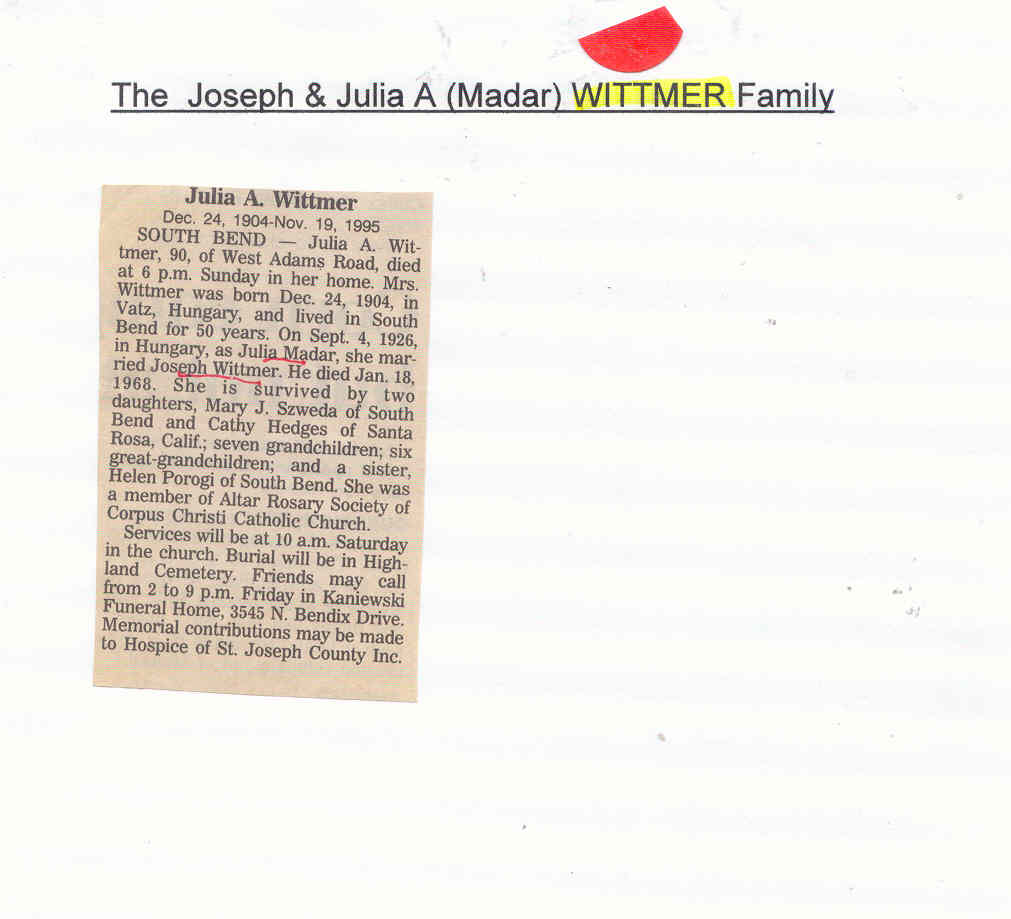 The Joseph & Julia A (Madar) WITTMER Family
Julia A. Wittmer
Dec. 24, 1904-Nov. 19, 1995
SOUTH BEND — Julia A. Wit-
tmer, 90, of West Adams Road, died
at 6 p.m. Sunday in her home. Mrs.
Wittmer was born Dec. 24, 1904, in
Vatz, Hungary, and lived in South
Bend for 50 years. On Sept. 4, 1926,
in Hungary, as Julia Madar, she mar-
ried Joseph Wittmer. He died Jan. 18,
1968. She is survived by two
daughters, Mary J. Szweda of South
Bend and Cathy Hedges of Santa
Rosa, Calif.; seven grandchildren; six
great-grandchildren; and a sister,
Helen Porogi of South Bend. She was
a member of Altar Rosary Society of
Corpus Christi Catholic Church.
Services will be at 10 a.m. Saturday
in the church. Burial will be in High-
land Cemetery. Friends may call
from 2 to 9 p.m. Friday in Kaniewski
Funeral Home, 3545 N. Bendix Drive.
Memorial contributions may be made
to Hospice of St. Joseph County Inc.